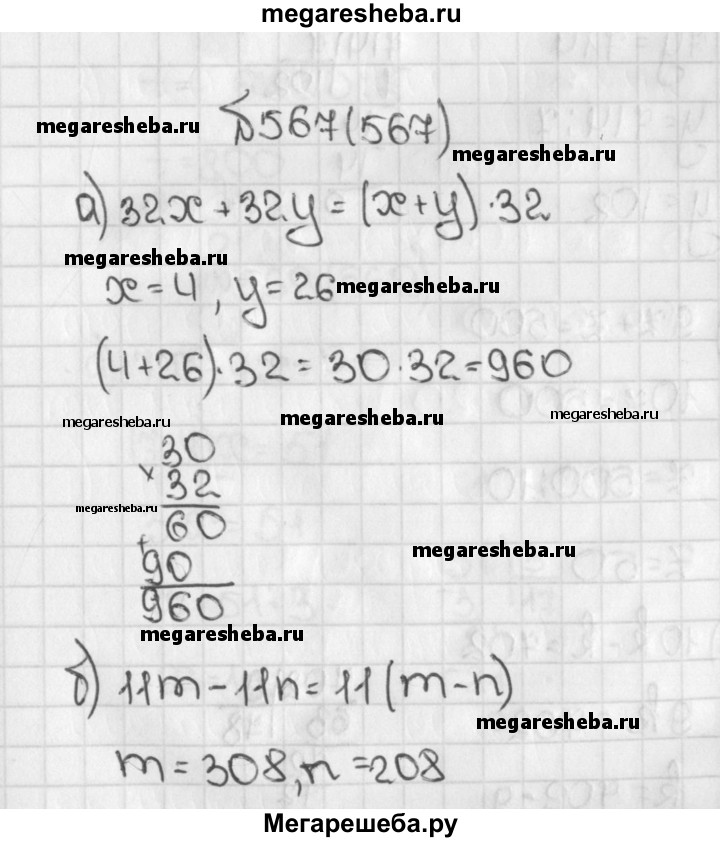 megaresheba.ru
№567(567)
megaresheba.ru
megaresheba.ru
а) 32x + 32y = (x+y)·32
megaresheba.ru
x = 4, y = 26
megaresheba.ru
(4+26)·32 = 30·32 = 960
megaresheba.ru
megaresheba.ru
megaresheba.ru
30
×
32
megaresheba.ru
60
+
90
megaresheba.ru
960
megaresheba.ru
б) 11m - 11n = 11(m-n)
megaresheba.ru
m = 308, n = 208
Мегарешеба.ру